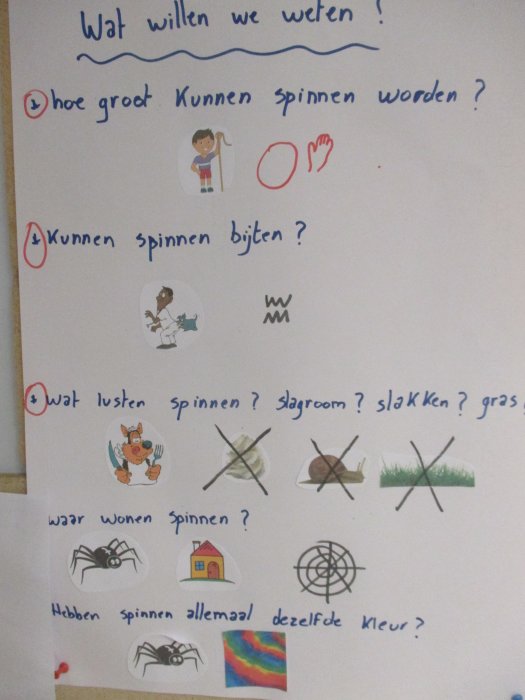 Wat willen we weten ?
* hoe groot kunnen spinnen worden ?
* Kunnen spinnen bijten ?
* wat lusten spinnen ? slagroom ? slakken ? gras
waar wonen spinnen ?
Hebben spinnen allemaal dezelfde kleur ?